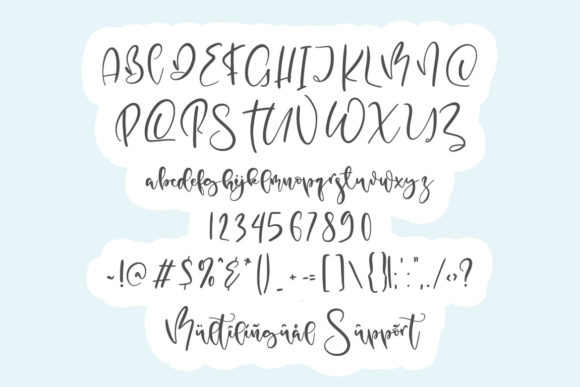 ABCDEFGHIJKLMNO
PQRSTUVWXYZ
abcdefghijklmnopqrstuvwxyz
1234567890
~!@#$%^&*()_+-=[]\{}|;':",./<>?
Mültilíñgüâl Sûppõrt